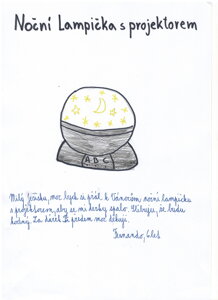 Noční Lampička s projektorem
A B C
Milý Ježíšku, moc bych si přál k Vánocům noční lampičku
s projektorem, aby se mi hezky spalo. Slibuji, že budu
hodný. Za dárek Ti předem moc děkuji.
Fernando, 6 let